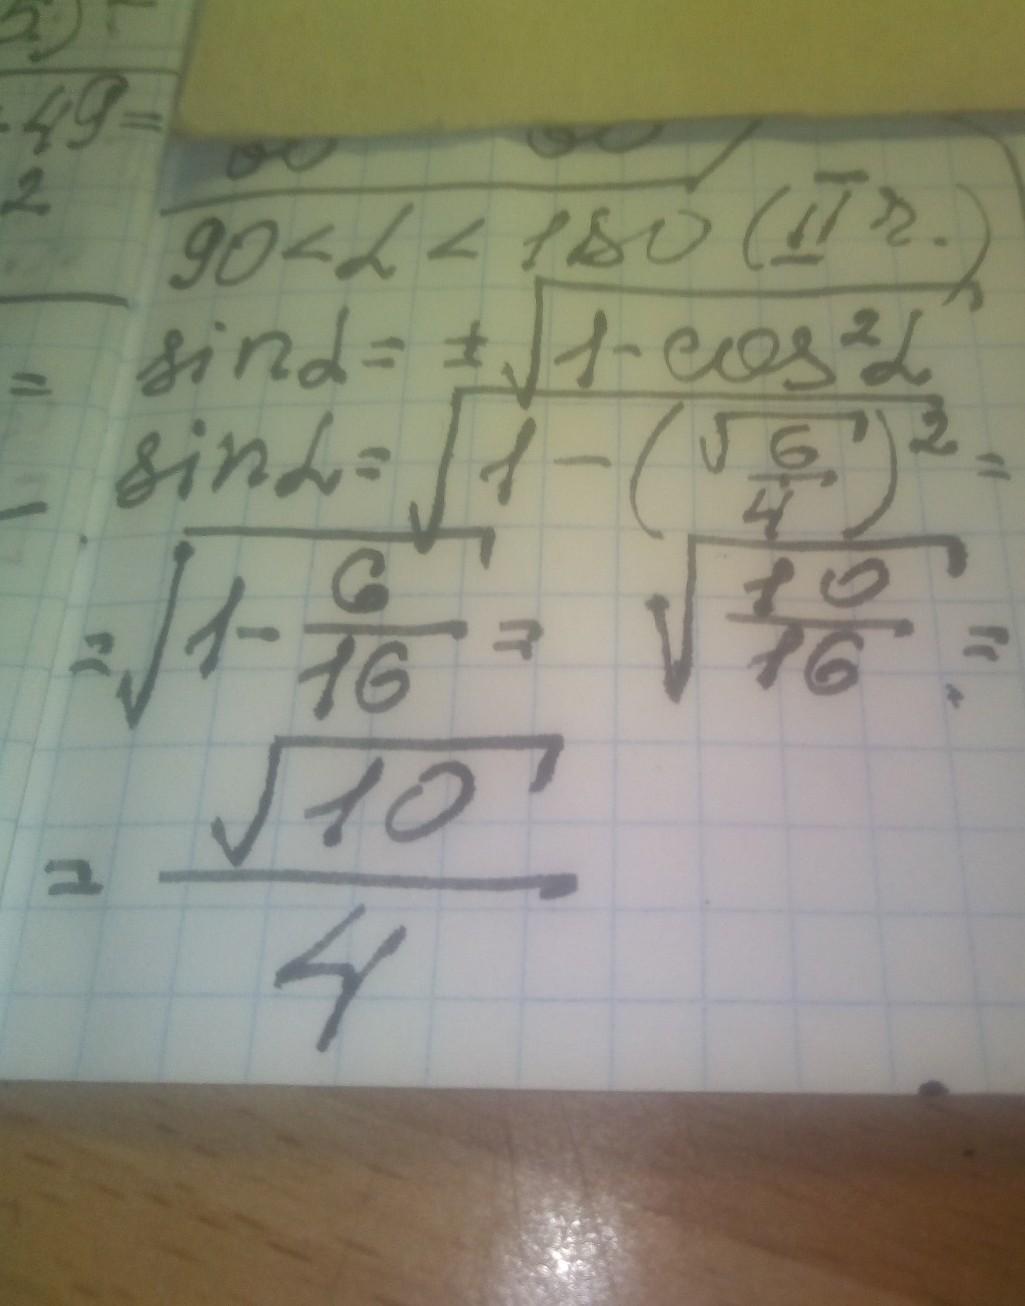 -49=
2
90<α<180 (II ч.)
sinα=±√1-cos²α
=
sinα=√1-(√6/4)²=
=√1-6/16=√10/16=
=√10/4